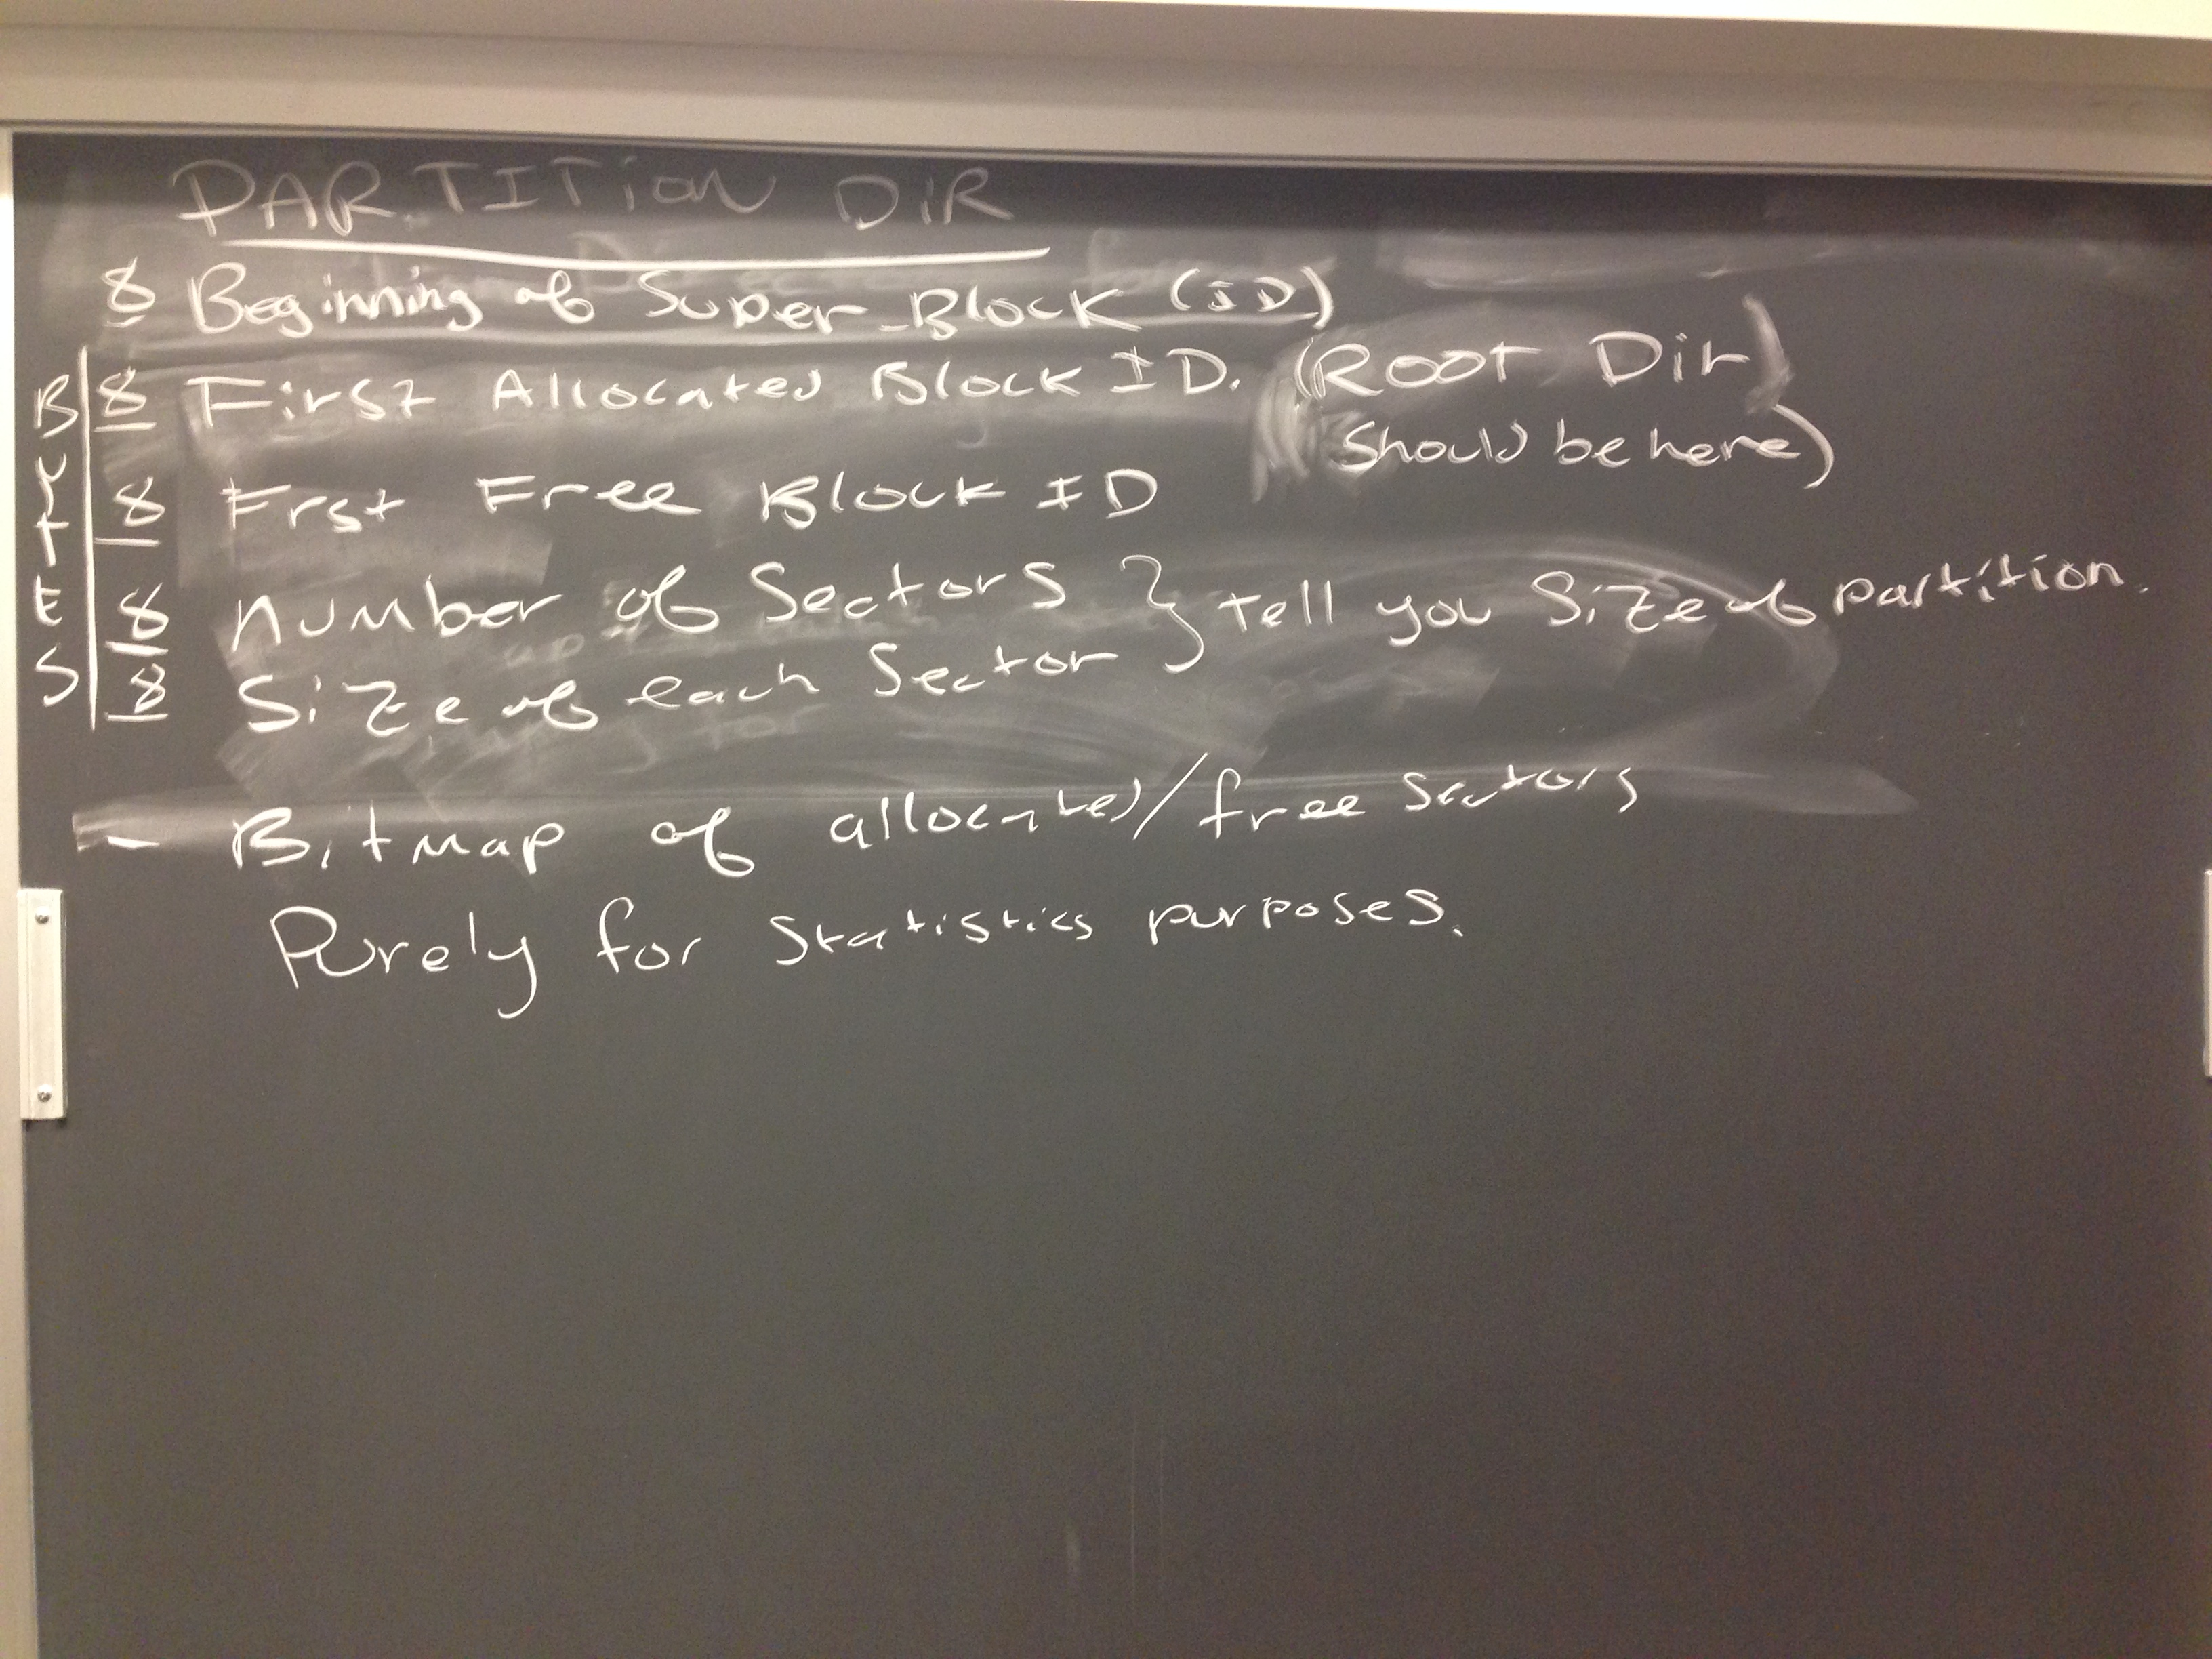 PARTITION DIR
8 Beginning of Super-Block (ID)
8 First Allocated Block ID. (Root Dir
Should be here)
8 Frst Free Block ID
8 Number of Sectors } Tell you Size of partition.
8 Size of each Sector
BYTES
- Bitmap of allocated/free sectors
Purely for Statistics purposes.